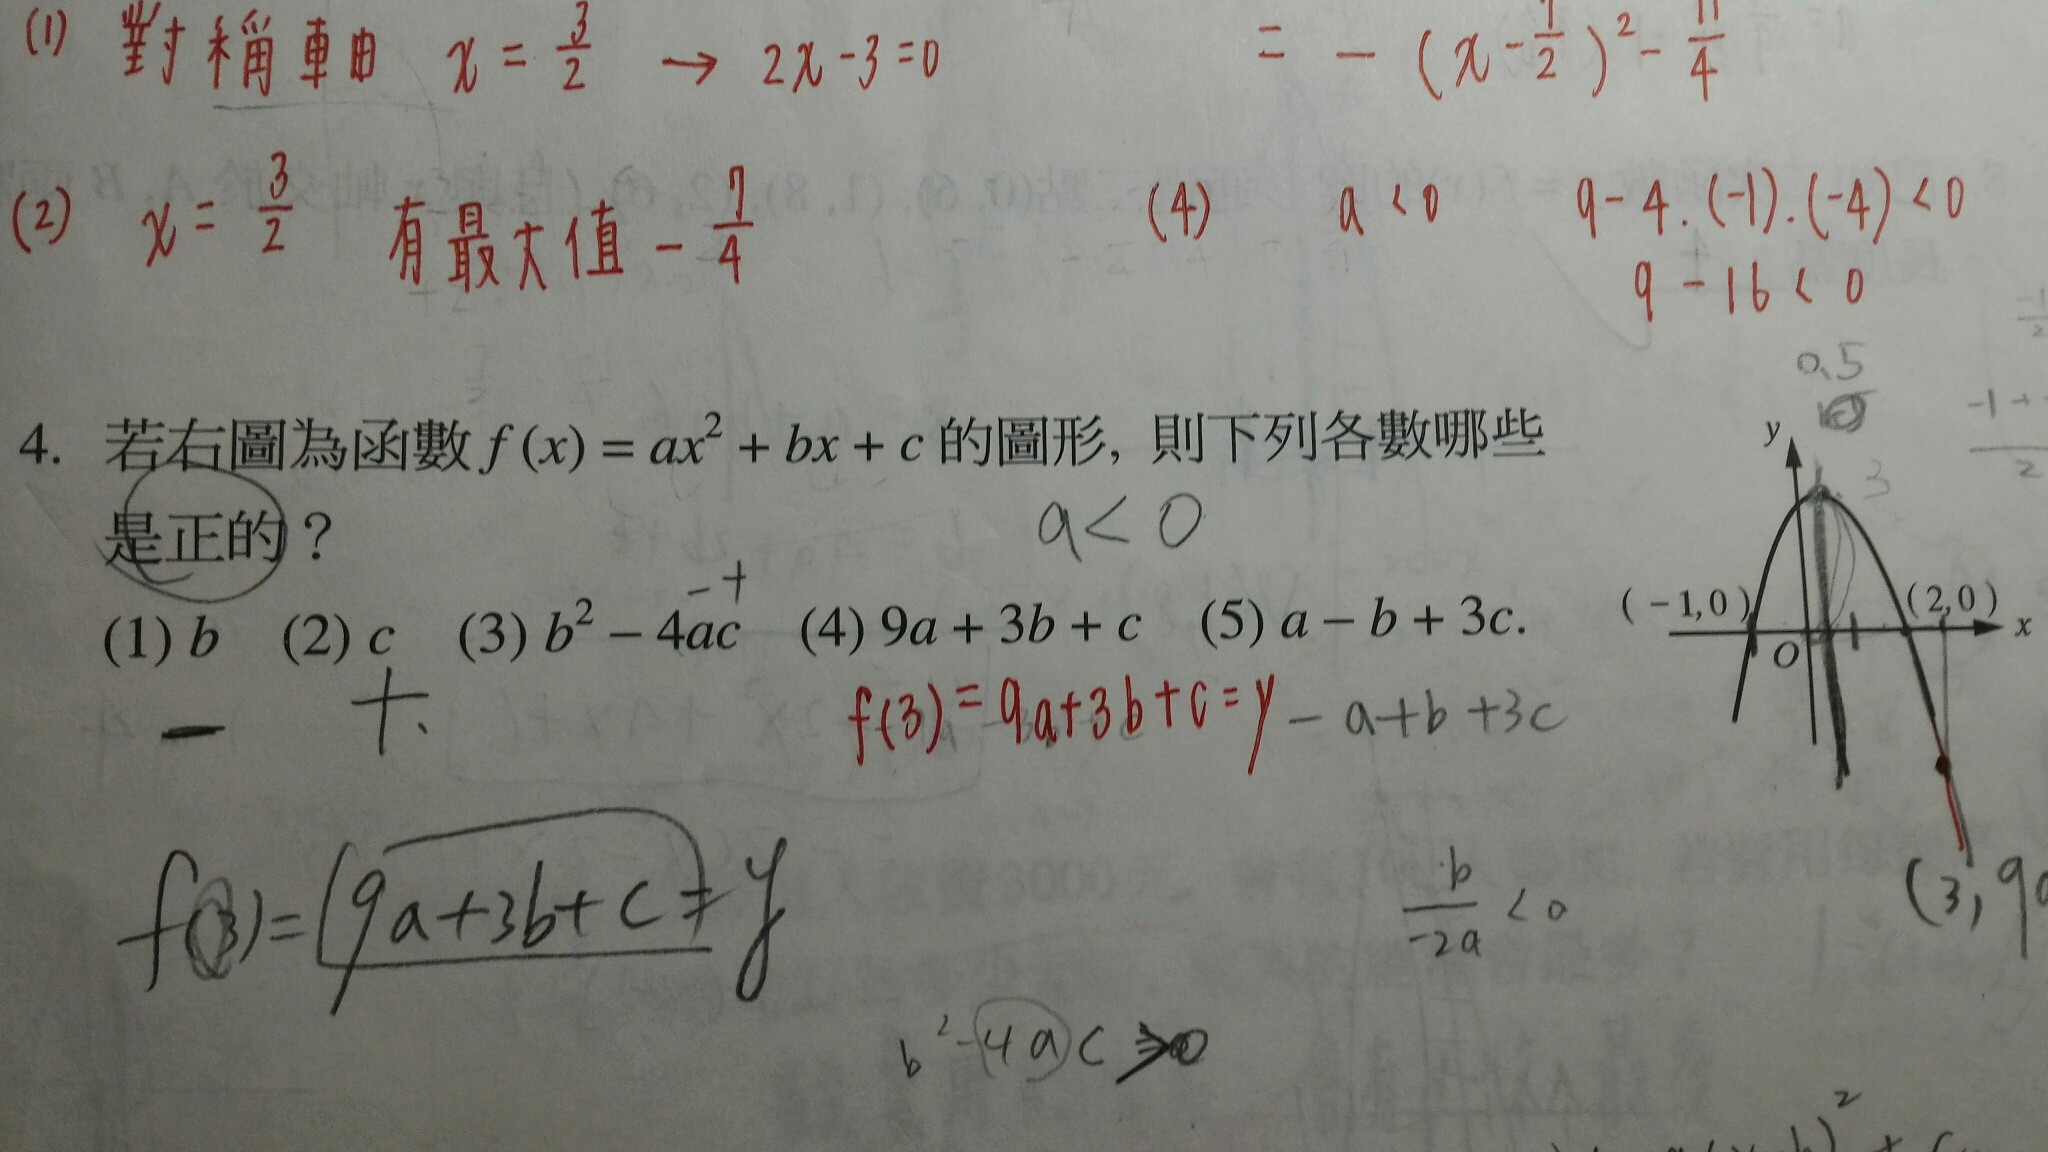 (1) 對稱軸 x = 3/2 → 2x - 3 = 0
= - (x - 7/2)² - 11/4
(2) x = 3/2 有最大值 - 7/4
(4) a < 0 9 - 4 · (-1) · (-4) < 0
9 - 16 < 0
4. 若右圖為函數 f (x) = ax² + bx + c 的圖形, 則下列各數哪些
是正的?
a < 0
- +
(1) b (2) c (3) b² – 4ac (4) 9a + 3b + c (5) a – b + 3c.
− +.
f(3) = 9a+3b+c = y
- a+b+3c
f(3) = 9a+3b+c = y
b/-2a < 0
b² - 4ac > 0
0.5
3
y
(-1, 0)
(2, 0)
x
O
(3, 9a